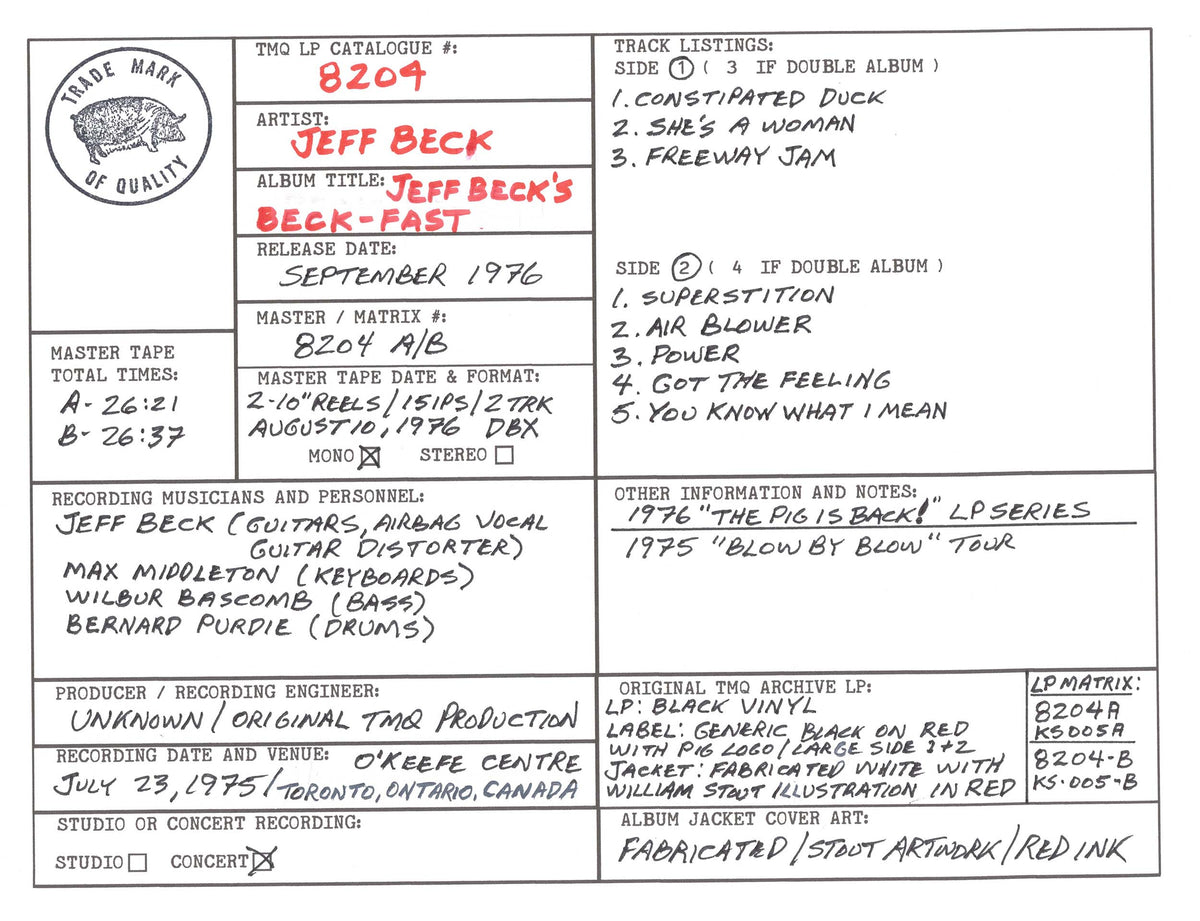 TRADE MARK
OF QUALITY
TMQ LP CATALOGUE #:
8204
ARTIST:
JEFF BECK
ALBUM TITLE: JEFF BECK'S
BECK-FAST
RELEASE DATE:
SEPTEMBER 1976
MASTER / MATRIX #:
8204 A/B
MASTER TAPE
TOTAL TIMES:
A- 26:21
B- 26:37
MASTER TAPE DATE & FORMAT:
2-10" REELS/15IPS/2TRK
AUGUST 10, 1976 DBX
MONO ☒ STEREO ☐
TRACK LISTINGS:
SIDE 1 ( 3 IF DOUBLE ALBUM )
1. CONSTIPATED DUCK
2. SHE'S A WOMAN
3. FREEWAY JAM
SIDE 2 ( 4 IF DOUBLE ALBUM )
1. SUPERSTITION
2. AIR BLOWER
3. POWER
4. GOT THE FEELING
5. YOU KNOW WHAT I MEAN
RECORDING MUSICIANS AND PERSONNEL:
JEFF BECK (GUITARS, AIRBAG VOCAL
GUITAR DISTORTER)
MAX MIDDLETON (KEYBOARDS)
WILBUR BASCOMB (BASS)
BERNARD PURDIE (DRUMS)
OTHER INFORMATION AND NOTES:
1976 "THE PIG IS BACK!" LP SERIES
1975 "BLOW BY BLOW" TOUR
PRODUCER / RECORDING ENGINEER:
UNKNOWN / ORIGINAL TMQ PRODUCTION
RECORDING DATE AND VENUE: O'KEEFE CENTRE
JULY 23, 1975/TORONTO, ONTARIO, CANADA
STUDIO OR CONCERT RECORDING:
STUDIO ☐ CONCERT ☒
ORIGINAL TMQ ARCHIVE LP:
LP: BLACK VINYL
LABEL: GENERIC BLACK ON RED
WITH PIG LOGO/LARGE SIDE 1+2
JACKET: FABRICATED WHITE WITH
WILLIAM STOUT ILLUSTRATION IN RED
LP MATRIX:
8204A
KS005A
8204-B
KS·005-B
ALBUM JACKET COVER ART:
FABRICATED/STOUT ARTWORK/RED INK